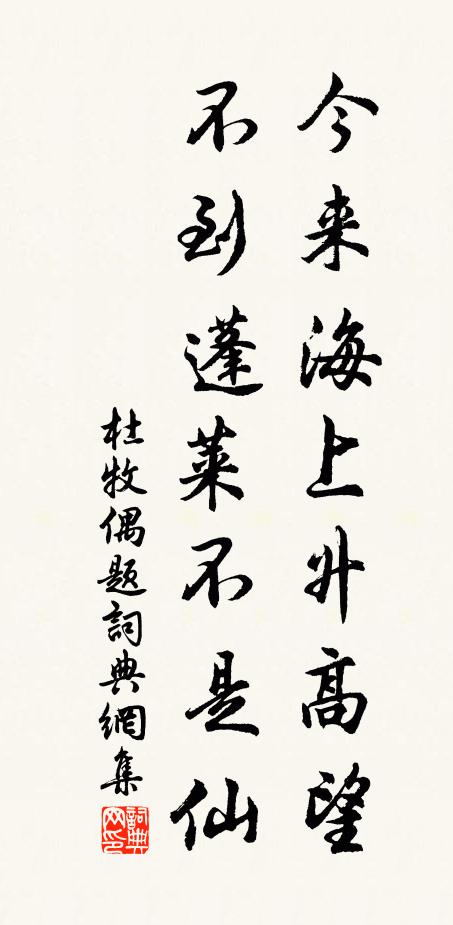 今来海上升高望
不到蓬莱不是仙
杜牧偶题詞典網集
詞典网印